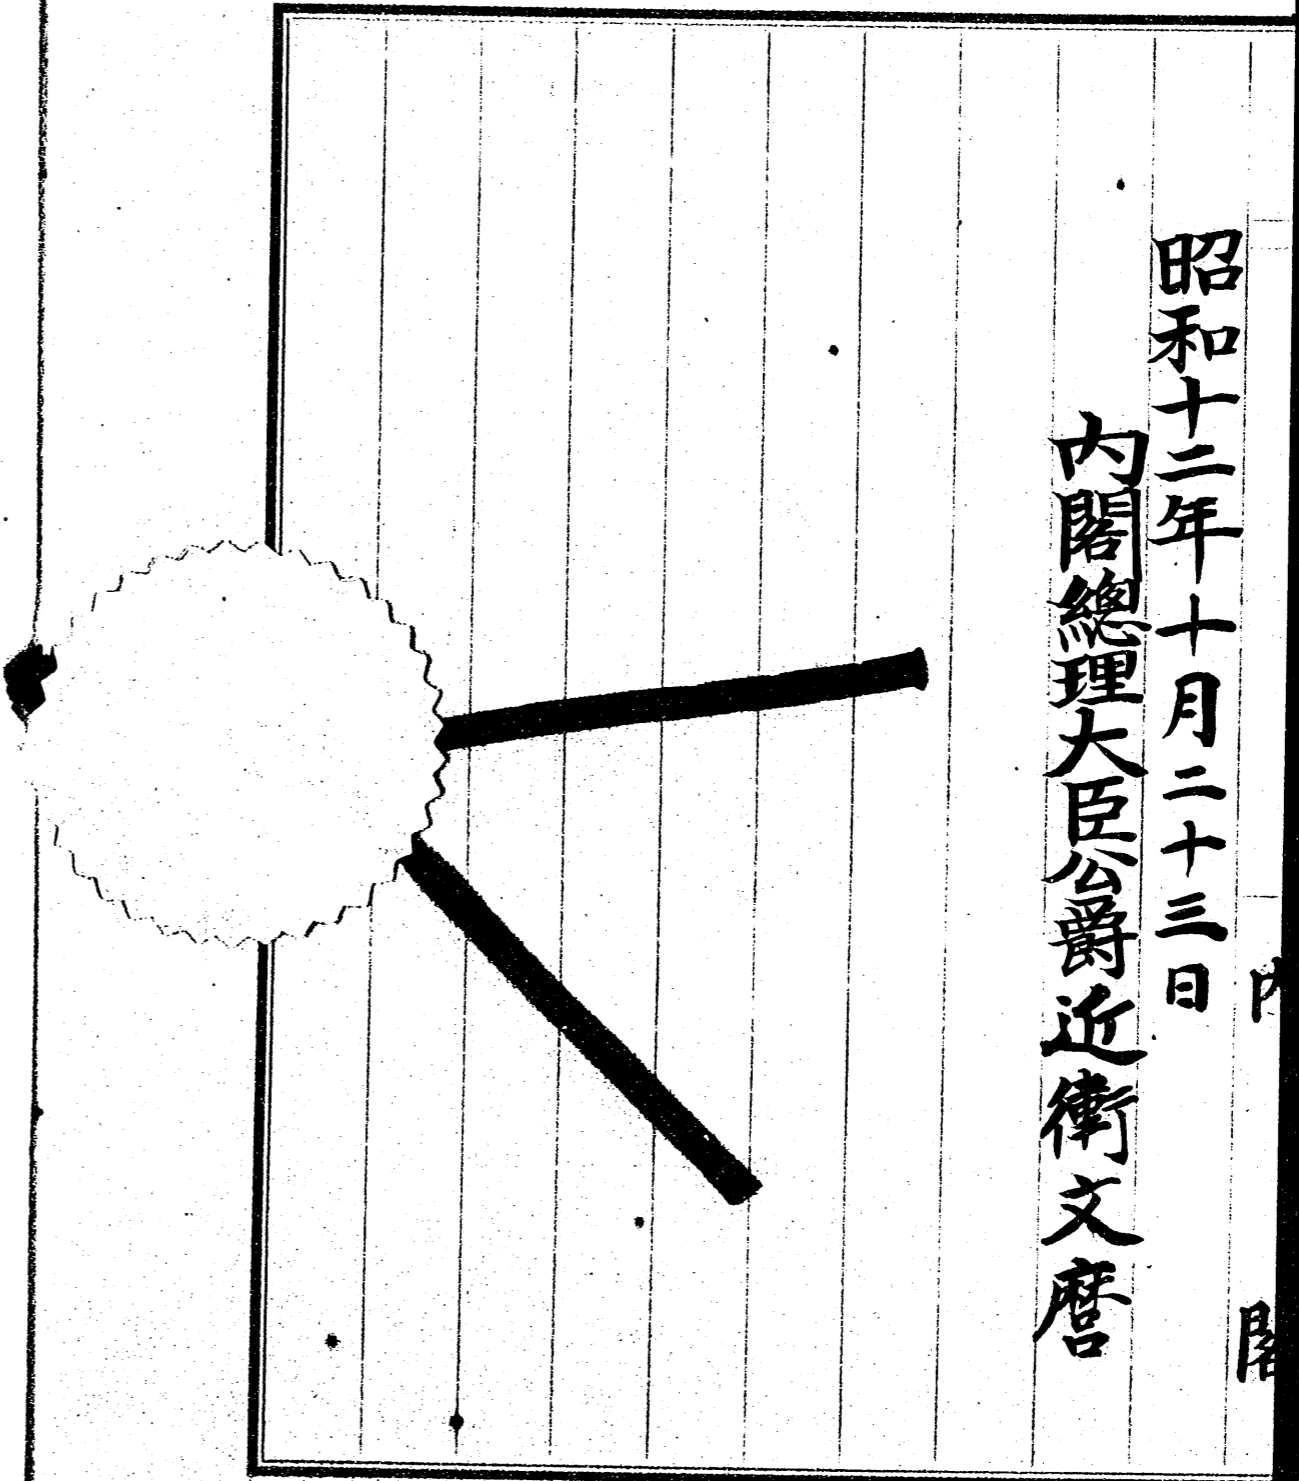 内閣
昭和十二年十月二十三日
内閣總理大臣公爵近衞文麿